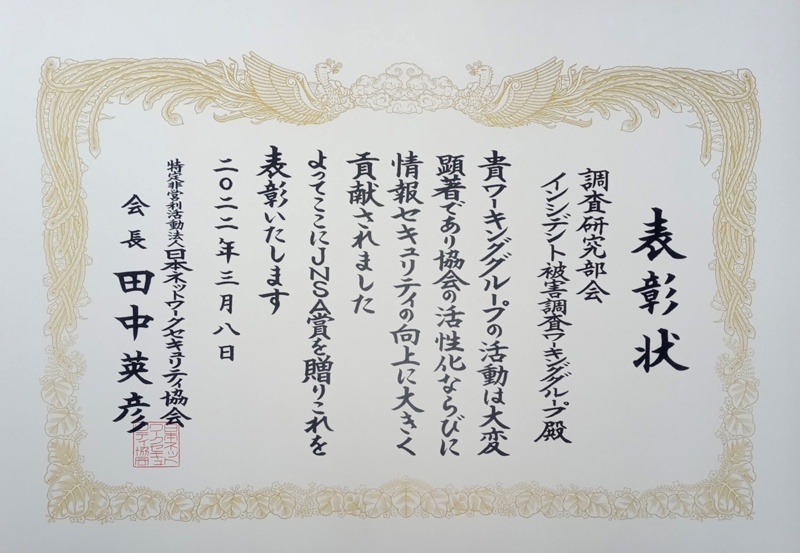 表彰状
調査研究部会
インシデント被害調査ワーキンググループ殿
貴ワーキンググループの活動は大変
顕著であり協会の活性化ならびに
情報セキュリティの向上に大きく
貢献されました
よってここにJNSA賞を贈りこれを
表彰いたします
二〇二二年三月八日
特定非営利活動法人日本ネットワークセキュリティ協会
会長 田中英彦
日本ネット
ワークセキュリ
ティ協会